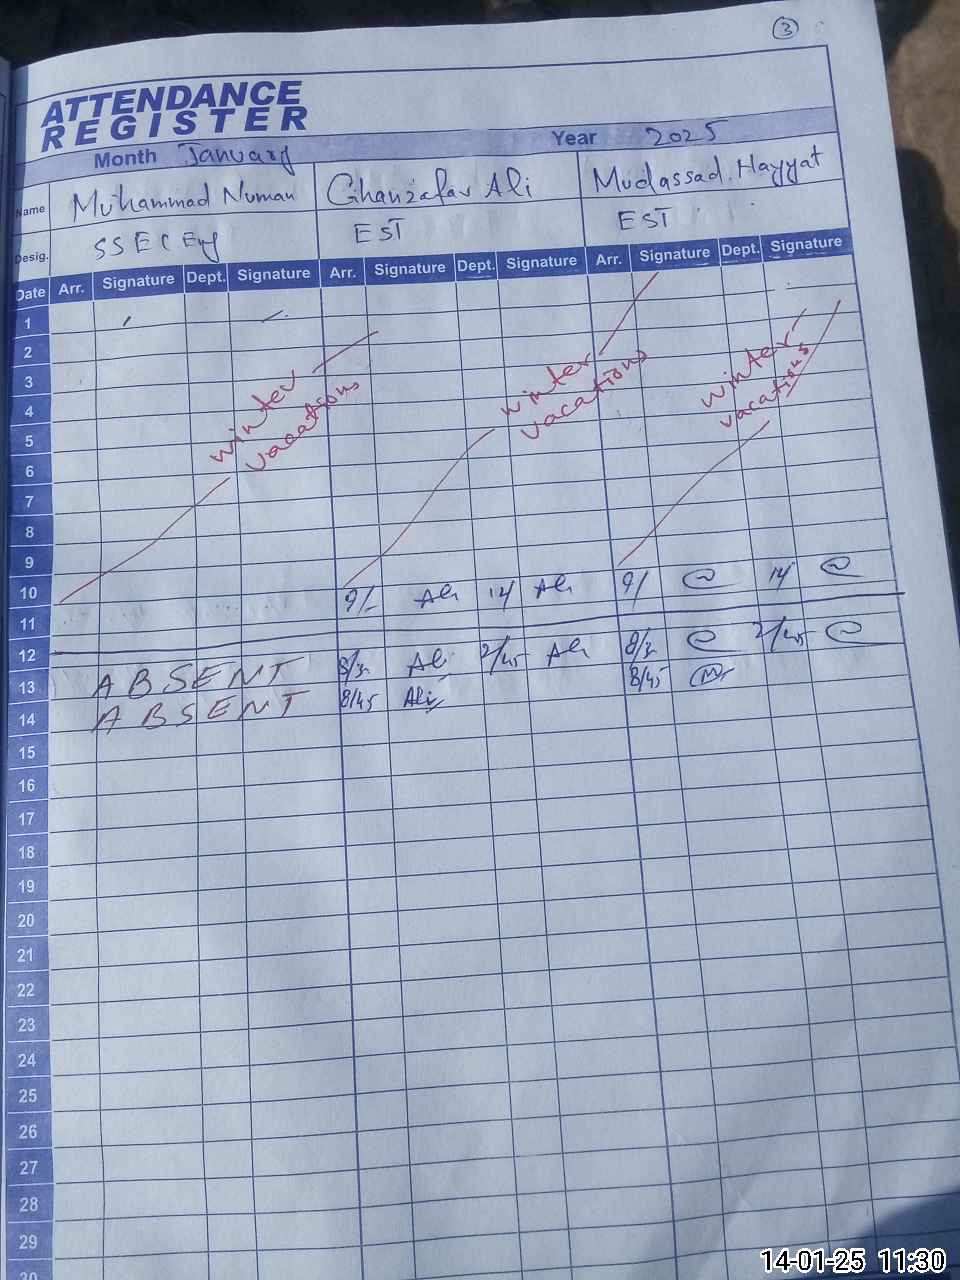 3
ATTENDANCE
REGISTER
Month January Year 2025
Name Muhammad Numan Ghanzafar Ali Mudassad Hayyat
Desig. SSE EST EST
Date Arr. Signature Dept. Signature Arr. Signature Dept. Signature Arr. Signature Dept. Signature
1
2
3
4
5
6
7
8
9
winter vacations winter vacations winter vacations
10 9/- Ali 14/ Ali 9/ 14/
11
12
13 ABSENT 8/3 Ali 2/45 Ali 8/3 2/45
14 ABSENT 8/45 Ali 8/45
15
16
17
18
19
20
21
22
23
24
25
26
27
28
29
30
14-01-25 11:30